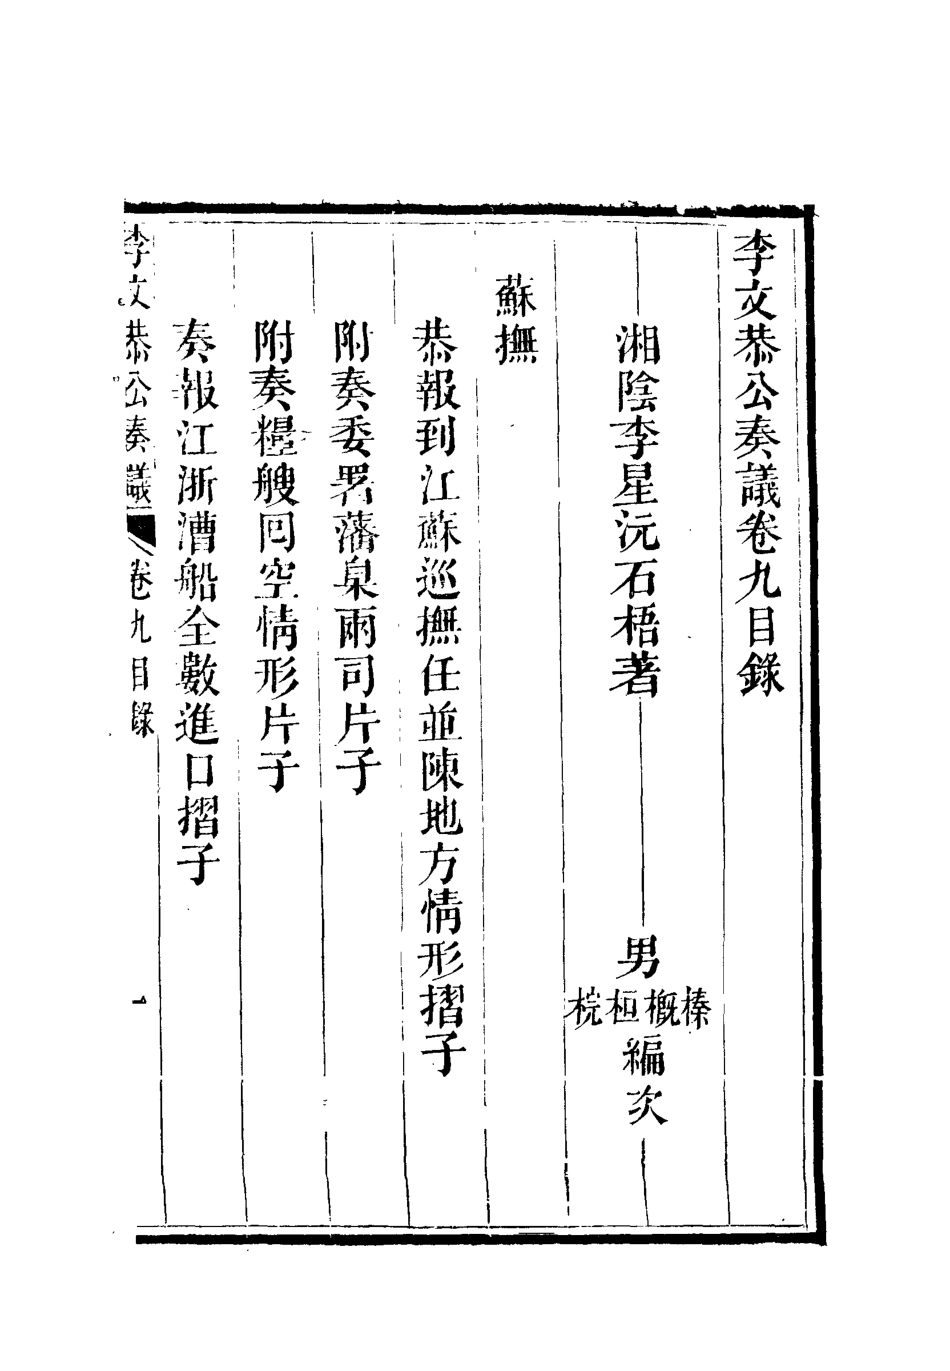 李文恭公奏議卷九目錄
湘陰李星沅石梧著　男榛概桓梡編次
蘇撫
恭報到江蘇巡撫任並陳地方情形摺子
附奏委署藩臬兩司片子
附奏糧艘囘空情形片子
奏報江浙漕船全數進口摺子
李文恭公奏議　卷九目錄　一